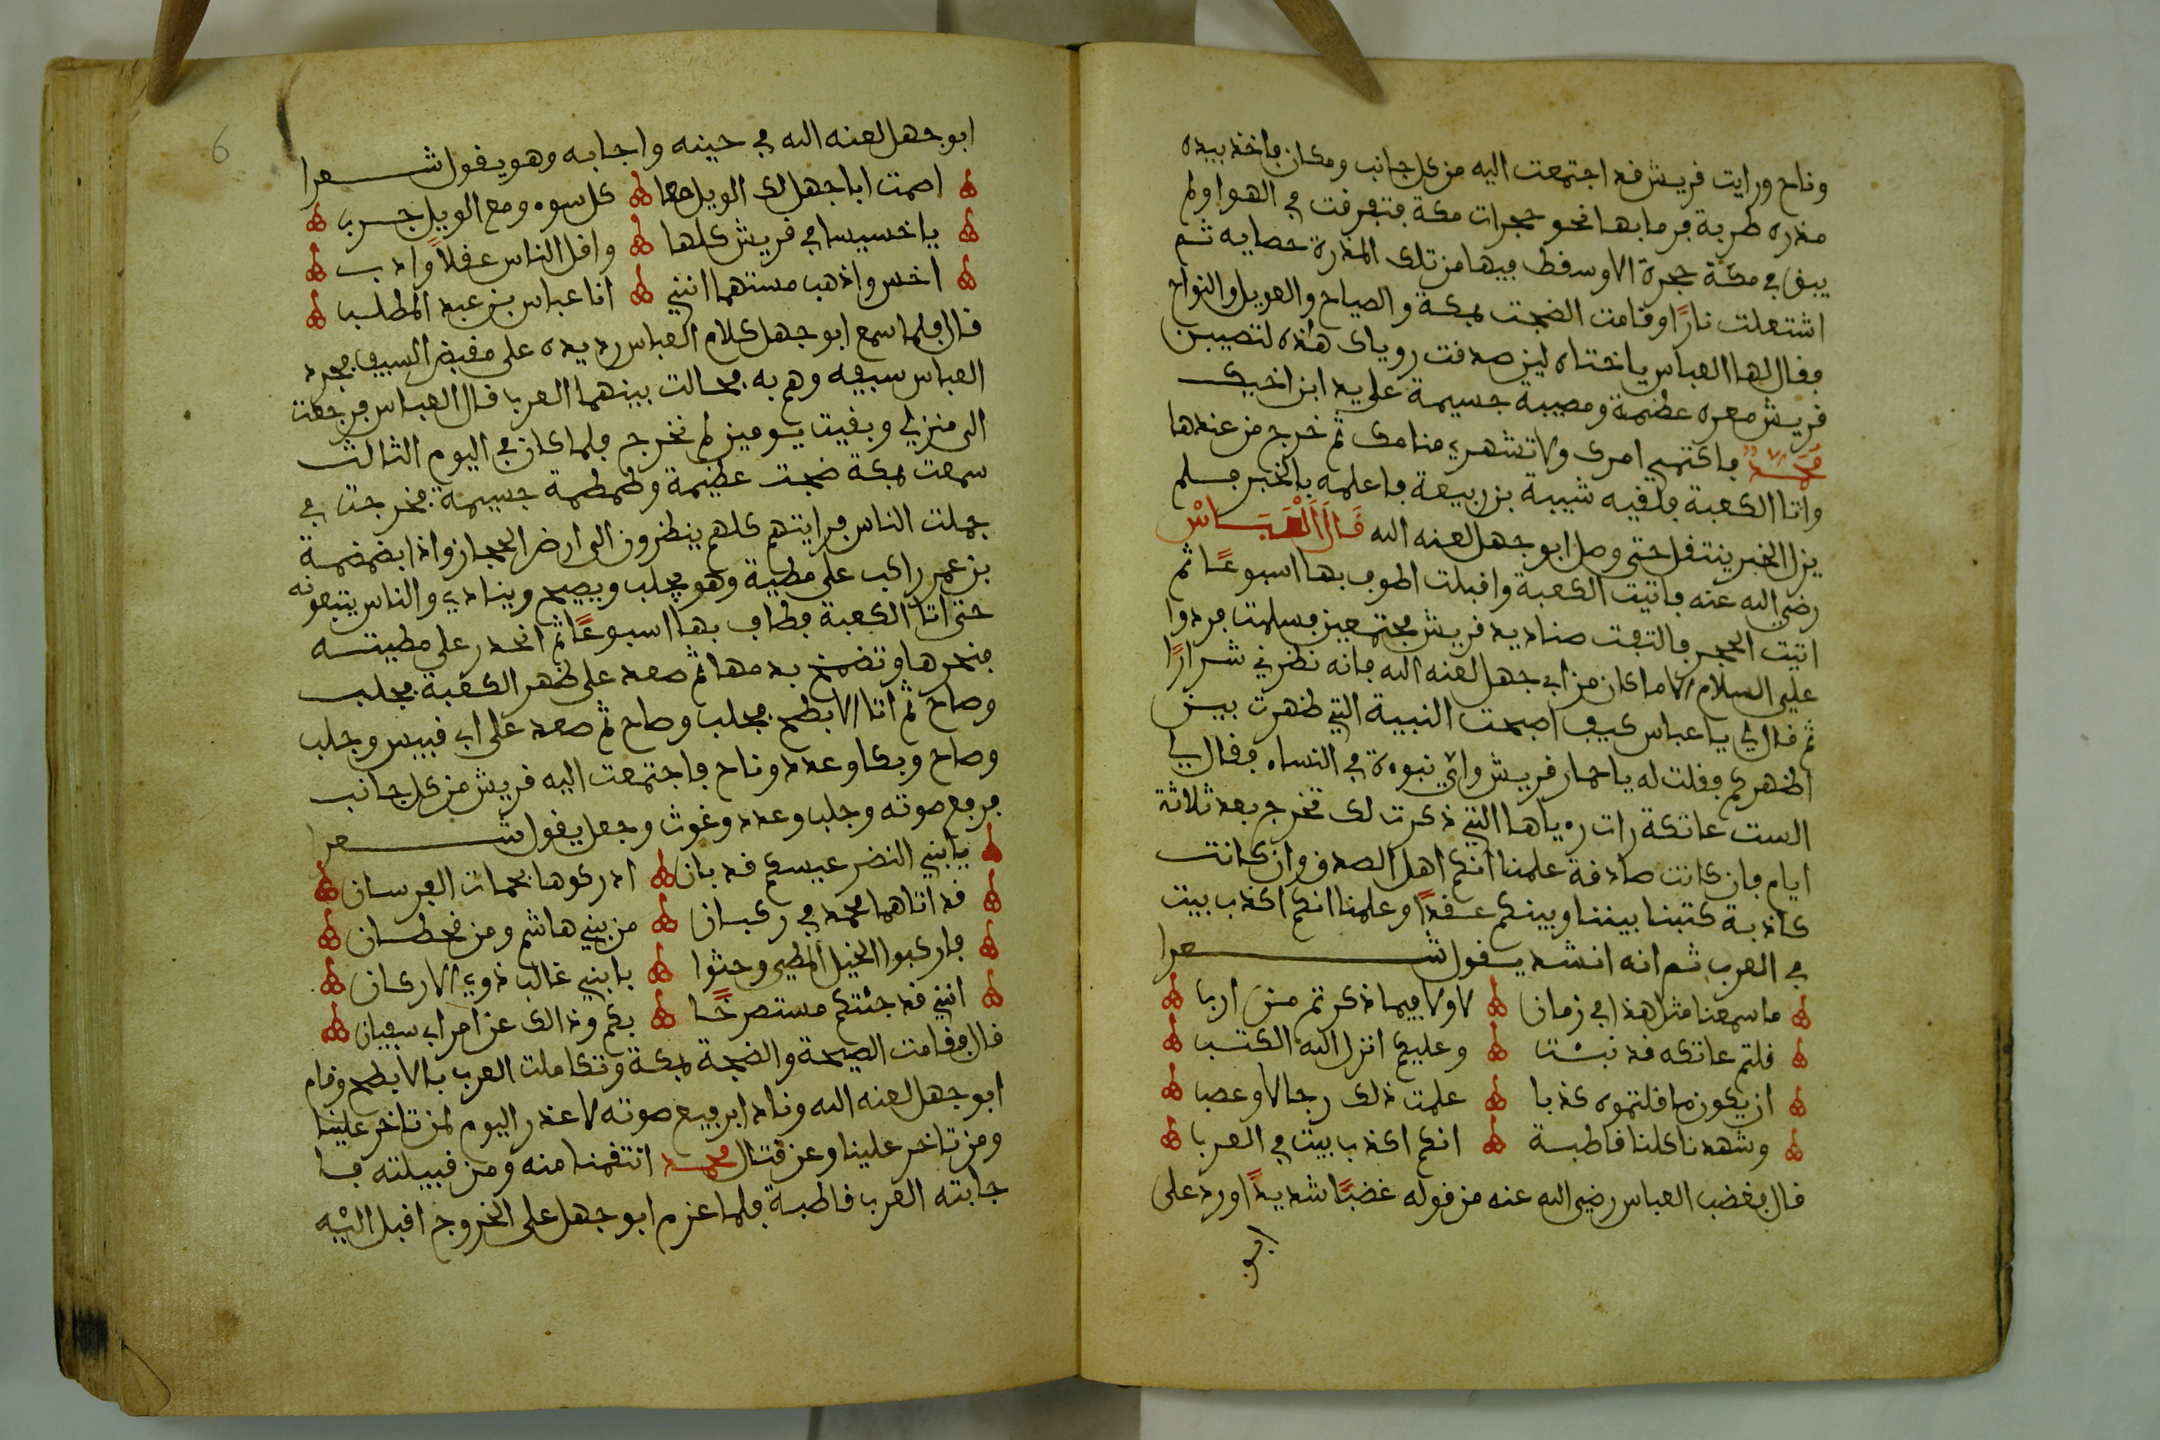 وناح ورايت فريش فد اجتمعت اليه من كل جانب ومكان فاخذ بيده
مذره طربة فرما بها نحو حجرات مكة فتفرفت في الهوا ولم
يبق في مكة حجرة الا وسفط فيها من تلك المذرة حصايه ثم
اشتعلت نارًا وقامت الضجت بمكة والصياح والعويل والنواح
ففال لها العباس يا ختاه لين صدفت روياك هذه لتصيبن
فريش معره عظيمة ومصيبة جسيمة على يد ابن اخيك
محمد فاكتمي امرى ولا تشهري منامك ثم خرج من عندها
واتا الكعبة فلفيه شيبة بن ربيعة فاعلمه بالخبر فلم
يزل الخبر ينتفل حتى وصل ابو جهل لعنه الله فَالَ اَلْعَبَّاسْ
رضي الله عنه فاتيت الكعبة وافبلت اطوف بها اسبوعًا ثم
اتيت الحجر فالتفت صناديد فريش مجتمعين فسلمت فردوا
علي السلام الا ما كان من ابي جهل لعنه الله فانه نظرني شرارًا
ثم فال لي يا عباس كيف اصبحت النبية التي ظهرت بين
اظهركم ففلت له يا حمار فريش واي نبوة في النساء ففال لي
الست عاتكة رات روياها التي ذكرت لك تخرج بعد ثلاثة
ايام فان كانت صادفة علمنا انكم اهل الصدف وان كانت
كاذبة كتبنا بيننا وبينكم عفدًا وعلمنا انكم اكذب بيت
في العرب ثم انه انشد يفول شعرا
ما سمعنا مثل هذا في زمان لا ولا فيما ذكرتم من اربا
فلتم عاتكه فد نبئت وعليكم انزل الله الكتب
ان يكون ما فلتموه كذبا علمت ذلك رجالا وعصبا
وشهدنا كلنا فاطبة انكم اكذب بيت في العربا
فال فغضب العباس رضي الله عنه من فوله غضبًا شديدًا ورد على
ابو
6
ابو جهل لعنه الله في حينه واجابه وهو يفول شعرا
اصمت ابا جهل لك الويل معا كل سوء ومع الويل حربا
يا خسيسا في فريش كلها وافل الناس عفلاً وادب
اخس واذهب مستهما انني انا عباس بن عبد المطلبا
فال فلما سمع ابو جهل كلام العباس رد يده على مفبض السيف فجرد
العباس سيفه وهم به فحالت بينهما العربا فال العباس فرجعت
الى منزلي وبفيت يومين لم نخرج فلما كان في اليوم الثالث
سمعت بمكة ضجت عظيمة وطمطمة جسيمة فخرجت في
جملت الناس فرايتهم كلهم ينظرون الى ارض الحجاز واذا بضمضمة
بن عمر راكب على مطية وهو يجلب ويصيح وينادي والناس يتبعونه
حتى اتا الكعبة فطاف بها اسبوعًا ثم انحدر على مطيته
فنحرها وتضمخ بدمها ثم صعد على ظهر الكعبة فجلب
وصاح ثم اتا الابطح فجلب وصاح ثم صعد على ابي فبيس وجلب
وصاح وبكا وعدد وناح فاجتمعت اليه فريش من كل جانب
فرفع صوته وجلب وعدد وغوث وجعل يفول شعرا
يا بني النضر عيسكم فد بان ادركوها بحمات الفرسان
فد اتاهما محمد في ركبان من بني هاشم ومن فحطان
فاركبوا الخيل المطي وحثوا يا بني غالب ذوي الاركان
انني فد جئتكم مستصرخًا بكم وذالك عن امر ابي سفيان
فال ففامت الصيحة والضجة بمكة وتكاملت العرب بالابطح وفام
ابو جهل لعنه الله ونادا برفيع صوته لا عذر اليوم لمن تاخر علينا
ومن تاخر علينا وعن فتال محمد انتفمنا منه ومن فبيلته فا
جابته العرب فاطبة فلما عزم ابو جهل على الخروج افبل اليه